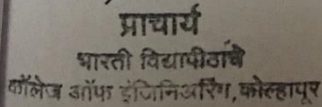 प्राचार्य
भारती विद्यापीठाचे
कॉलेज ऑफ इंजिनिअरिंग, कोल्हापूर